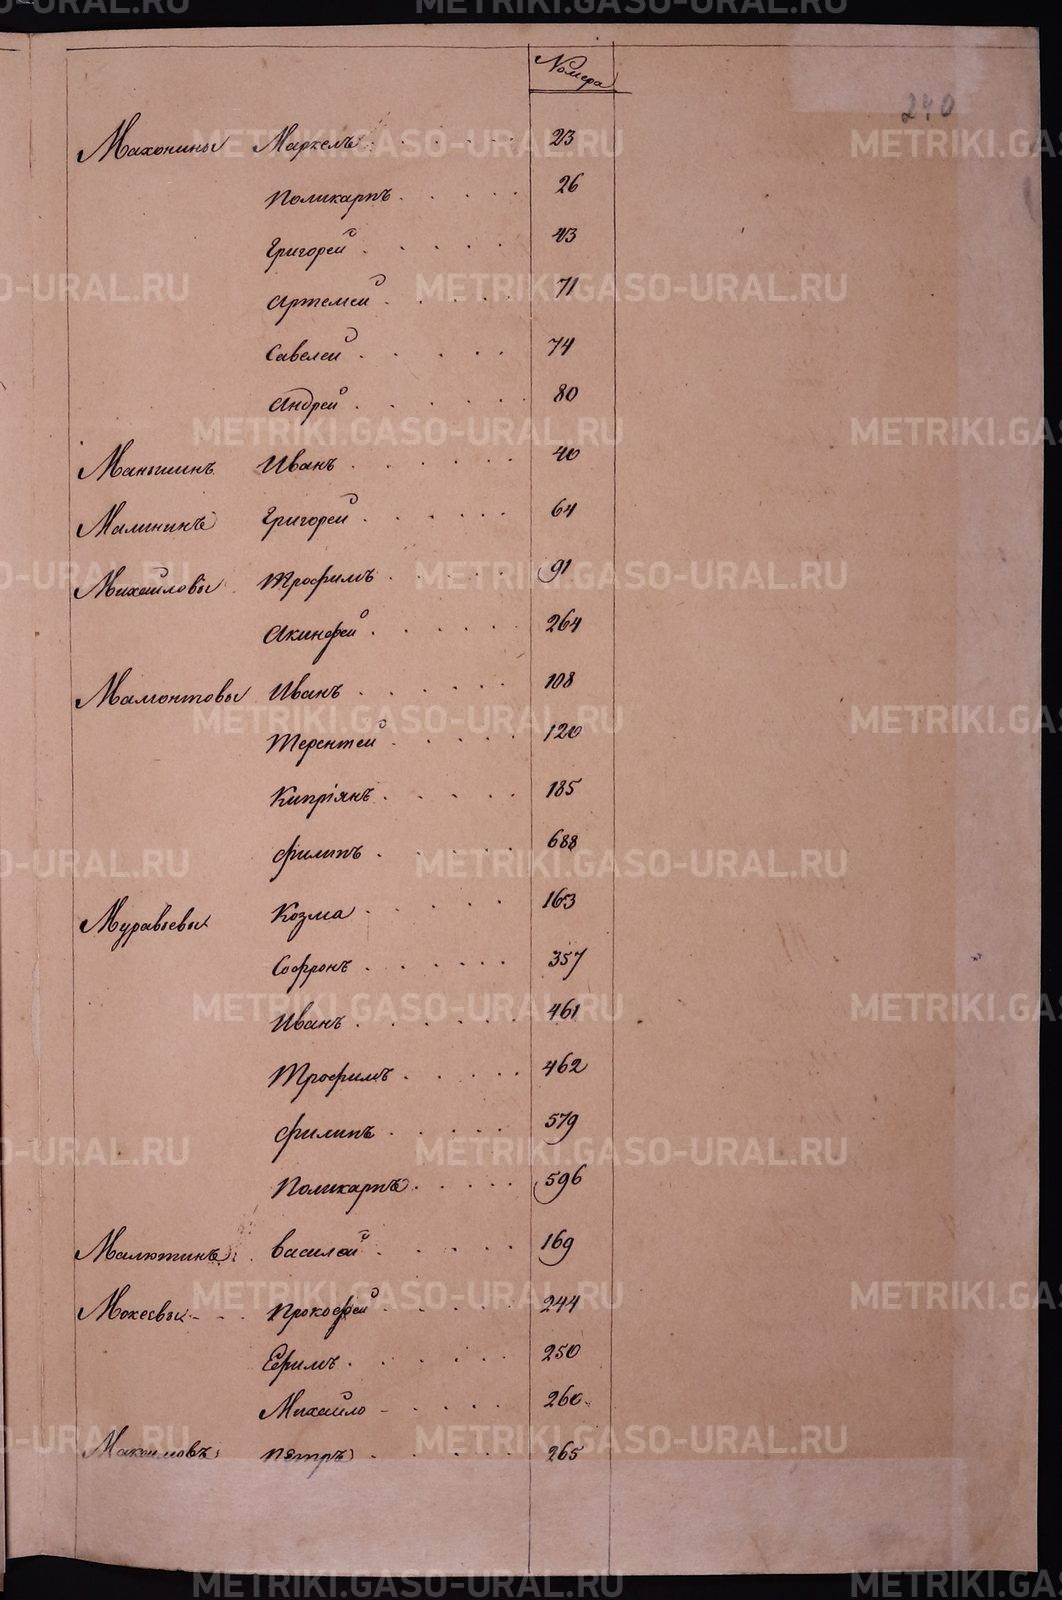 Номера
240
Махонины Маркелъ 23
Поликарпъ 26
Григорей 43
Артемей 71
Савелей 74
Андрей 80
Маньшинъ Иванъ 40
Малининъ Григорей 64
Михайловы Трофимъ 91
Акинфей 264
Мамонтовы Иванъ 108
Терентей 120
Кипріянъ 185
Филипъ 688
Муравьевы Козма 163
Софронъ 357
Иванъ 461
Трофимъ 462
Филипъ 579
Поликарпъ 596
Малютинъ Василей 169
Мокеевы Прокофей 244
Ефимъ 250
Михайло 260
Максимовъ Петръ 265
METRIKI.GASO-URAL.RU